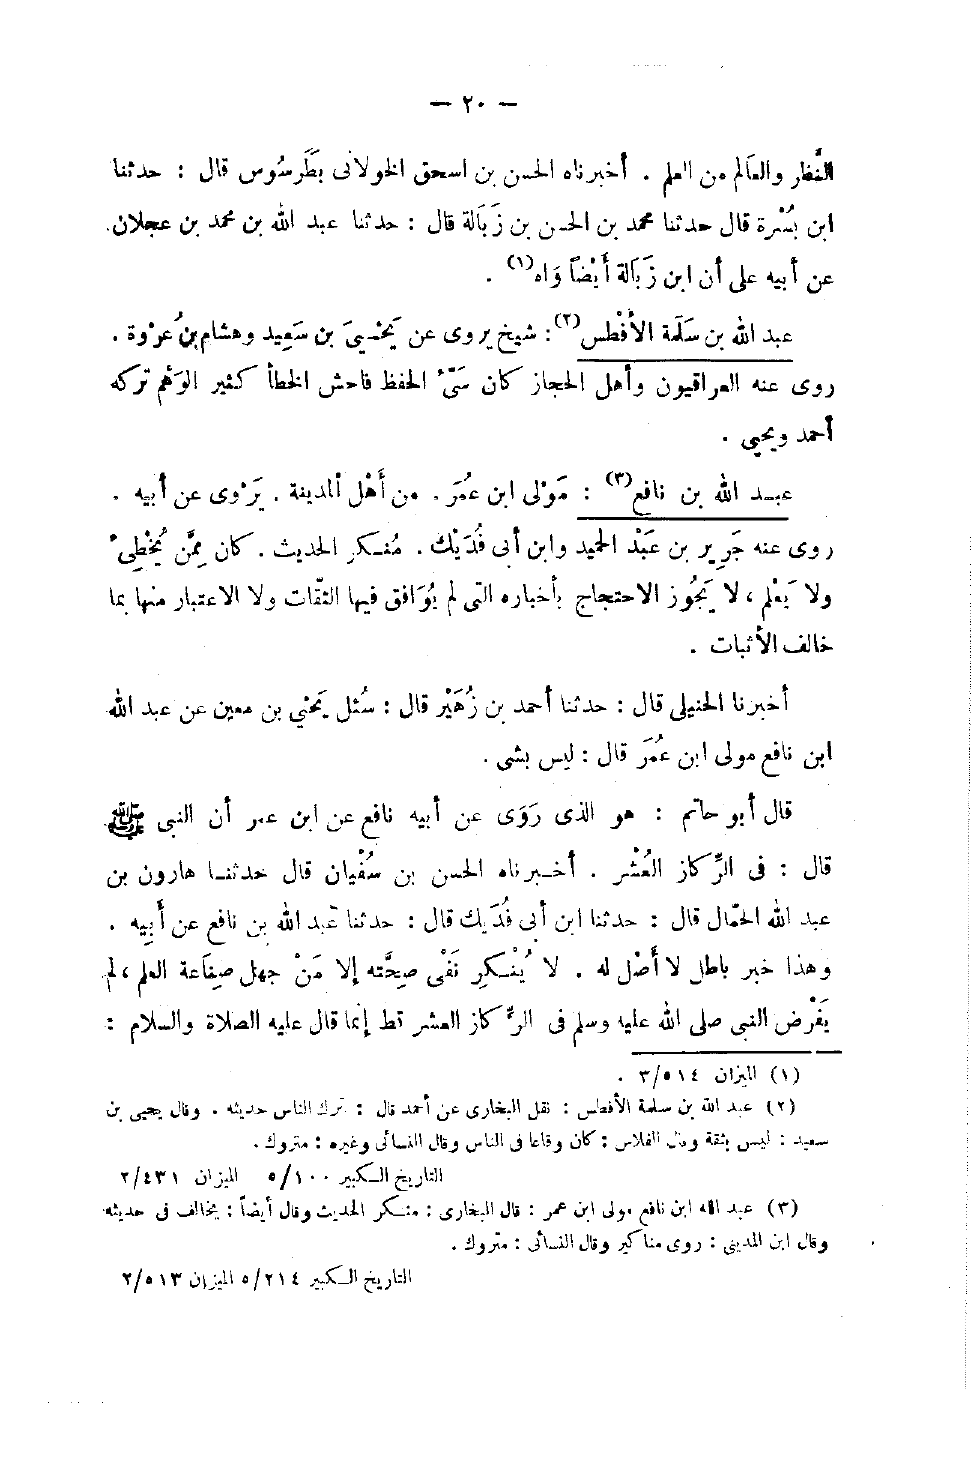 — ٢٠ —
النَّظار والعَالِم من العلم . أخبرناه الحسن بن اسحق الخولانى بطَرسُوس قال : حدثنا
ابن بُسْرة قال حدثنا محمد بن الحسن بن زَبَالة قال : حدثنا عبد الله بن محمد بن عجلان
عن أبيه على أن ابن زَبَالة أيْضاً وَاه(١) .
عبد الله بن سَلَمة الأفْطس(٢) : شيخ يروى عن يَحْيىَ بن سَعِيد وهشام بن عُروْة .
روى عنه العراقيون وأهل الحجاز كان سَىّْء الحفظ فاحش الخطأ كثير الوَهْم تركه
أحمد ويحيى .
عبد الله بن نافع(٣) : مَوْلى ابن عُمَرَ . من أَهْل المدينة . يَرْوى عن أبيه .
روى عنه جَرِير بن عَبْد الحميد وابن أبى فُدَيْك . مُنْكر الحديث . كان مِمَّن يُخْطِىء
ولا يَعْلم ، لا يَجُوز الاحتجاج بأخباره التى لم يُوَافق فيها الثقّات ولا الاعتبار منها بما
خالف الأثبات .
أخبرنا الحنبلى قال : حدثنا أحمد بن زُهَيْر قال : سُئل يَحْيي بن معين عن عبد الله
ابن نافع مولى ابن عُمَرَ قال : ليس بشى .
قال أبو حاتم : هو الذى رَوَى عن أبيه نافع عن ابن عمر أن النبى ﷺ
قال : فى الرِّكاز العُشْر . أخبرناه الحسن بن سُفْيان قال حدثنا هارون بن
عبد الله الحمّال قال : حدثنا ابن أبى فُدَيك قال : حدثنا عَبد الله بن نافع عن أَبِيه .
وهذا خبر باطل لا أَصْل له . لا يُنْكر نَفْى صِحَّته إلا مَنْ جهل صِنَاعة العلم ، لم
يَفْرض النبى صلى الله عليه وسلم فى الرِّكاز العشر قط إنما قال عليه الصلاة والسلام :
(١) الميزان ٣/٥١٤ .
(٢) عبد الله بن سلمة الأفطس : نقل البخارى عن أحمد قال : ترك الناس حديثه . وقال يحيى بن
سعيد : ليس بثقة وقال الفلاس : كان وقاعا فى الناس وقال النسائى وغيره : متروك .
التاريخ الكبير ٥/١٠٠ الميزان ٢/٤٣١
(٣) عبد الله ابن نافع مولى ابن عمر : قال البخارى : منكر الحديث وقال أيضاً : يخالف فى حديثه
وقال ابن المدينى : روى مناكير وقال النسائى : متروك .
التاريخ الكبير ٥/٢١٤ الميزان ٢/٥١٣